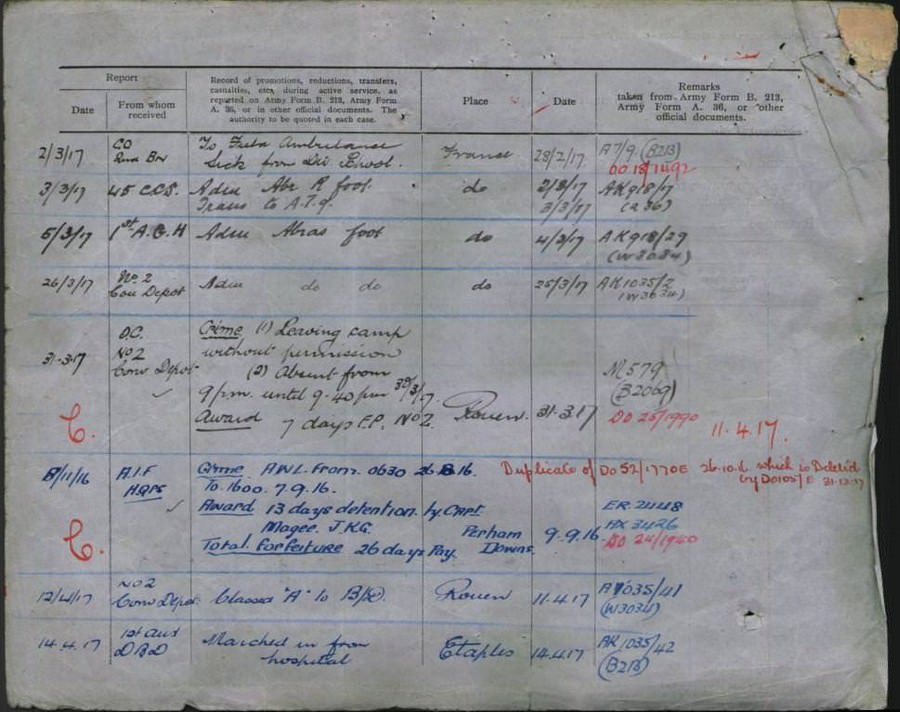 Report
Record of promotions, reductions, transfers, casualties, etc., during active service, as reported on Army Form B. 213, Army Form A. 36, or in other official documents. The authority to be quoted in each case.
Place
Date
Remarks taken from Army Form B. 213, Army Form A. 36, or other official documents.
Date
From whom received
2/3/17
CO
To Field Ambulance
Sick from Div School.
France
28/2/17
A7/9 (B213)
DO 18/1492
3/3/17
45 CCS.
Adm Abr R foot.
Trans to A.T.9.
do
2/3/17
3/3/17
AK918/17
(A36)
5/3/17
1st A.G.H
Adm Abras foot
do
4/3/17
AK918/29
(W3034)
26/3/17
No. 2
Con Depot
Adm do do
do
25/3/17
AK1035/2
(W3034)
31.3.17
O.C.
No 2
Conv Depot
Crime (1) Leaving camp
without permission
(2) Absent from
9 p.m. until 9.40 p.m. 30/3/17.
Award 7 days F.P. No 2.
Rouen
31.3.17
M579
(B2069)
DO 25/1990
11.4.17.
C.
8/11/16
A.I.F
HQRS
Crime AWL. from 0630 26.8.16.
To 1600. 7.9.16.
Award 13 days detention by Capt.
Magee. J.K.G.
Total forfeiture 26 days Pay.
Perham
Downs
9.9.16.
Duplicate of DO 52/1770E 26.10.16 which is Deleted
by DO105/E 31.12.17
ER 2448
AX 3426
DO 24/1940
C.
12/4/17
No 2
Conv Depot
Classed "A" to B/D.
Rouen
11.4.17
AK1035/41
(W3034)
14.4.17
1st Aust
DBD
Marched in from
hospital
Etaples
14.4.17
AK1035/42
(B213)